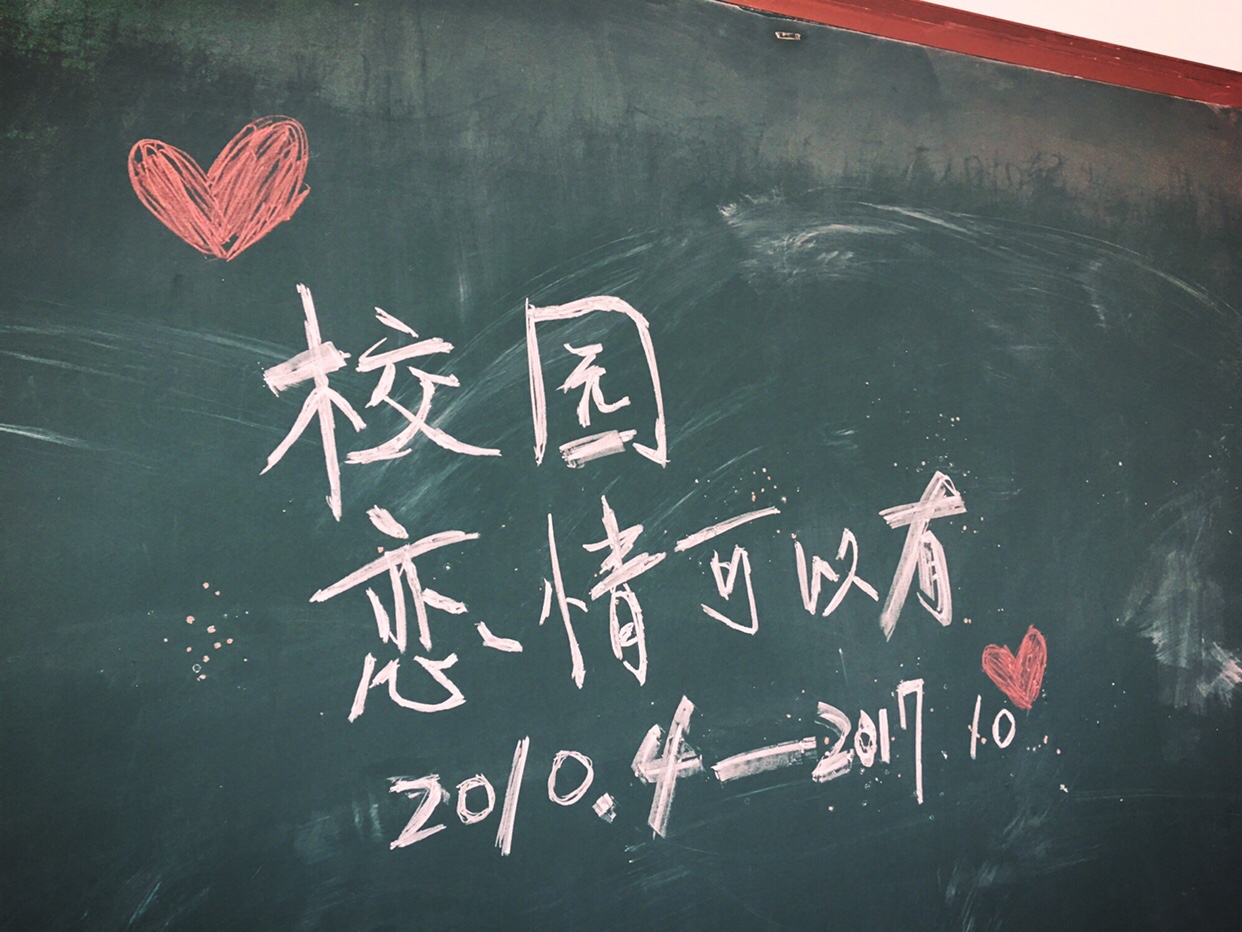 校园
恋情可以有
2010.4—2017.10